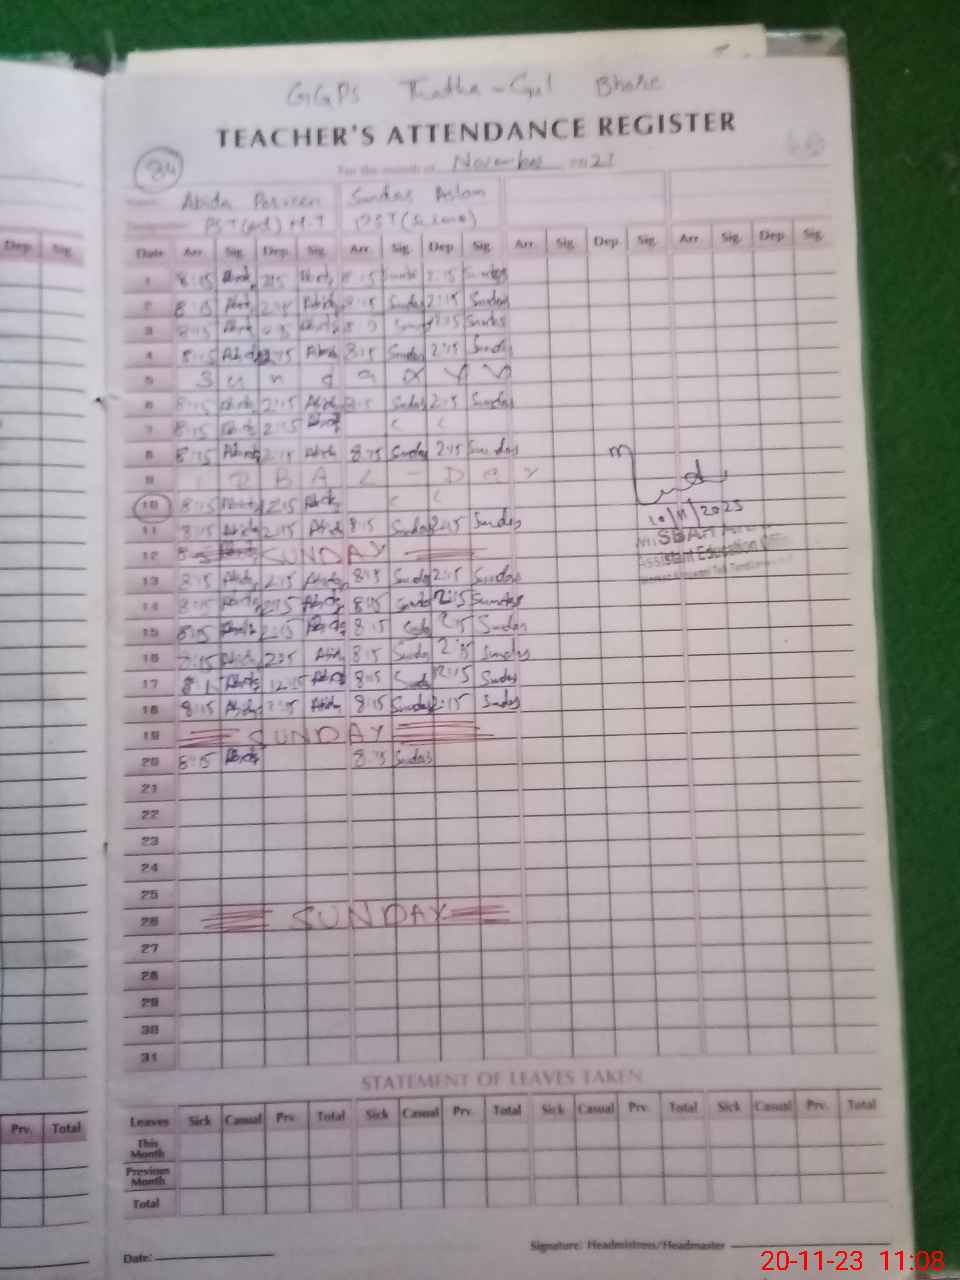 GGPS Thatha - Gul Bhake
TEACHER'S ATTENDANCE REGISTER
For the month of November 2023
84
Name: Abida Parveen Sundas Aslam
Designation PST
Dep. Sig.
Date Arr. Sig. Dep. Sig. Arr. Sig. Dep. Sig. Arr. Sig. Dep. Sig. Arr. Sig. Dep. Sig.
1 8:15 Abida 2:15 Abida 8:15 Sundas 2:15 Sundas
2 8:15 Abida 2:15 Abida 8:15 Sundas 2:15 Sundas
3 8:15 Abida Abida Sundas 2:15 Sundas
4 8:15 Abida 2:15 Abida 8:15 Sundas 2:15 Sundas
5 S u n d a y
6 8:15 Abida 2:15 Abida 8:15 Sundas 2:15 Sundas
7 8:15 Abida 2:15 Abida C L
8 8:15 Abida 2:15 Abida 8:15 Sundas 2:15 Sundas
9 I Q B A L - D a y
10 8:15 Abida 2:15 Abida C L
10/11/2023
11 8:15 Abida 2:15 Abida 8:15 Sundas 2:15 Sundas
MISBAH
Assistant Education
12 SUNDAY
13 8:15 Abida 2:15 Abida 8:15 Sundas 2:15 Sundas
14 8:15 Abida 2:15 Abida 8:15 Sundas 2:15 Sundas
15 8:15 Abida 2:15 Abida 8:15 Sundas 2:15 Sundas
16 8:15 Abida 2:15 Abida 8:15 Sundas 2:15 Sundas
17 Abida 12:15 Abida 8:15 Sundas 2:15 Sundas
18 8:15 Abida 2:15 Abida 8:15 Sundas 2:15 Sundas
19 SUNDAY
20 8:15 Abida 8:15 Sundas
21
22
23
24
25
26 SUNDAY
27
28
29
30
31
STATEMENT OF LEAVES TAKEN
Prv. Total
Leaves Sick Casual Prv. Total Sick Casual Prv. Total Sick Casual Prv. Total Sick Casual Prv. Total
This Month
Previous Month
Total
Date:
Signature: Headmistress/Headmaster
20-11-23 11:08